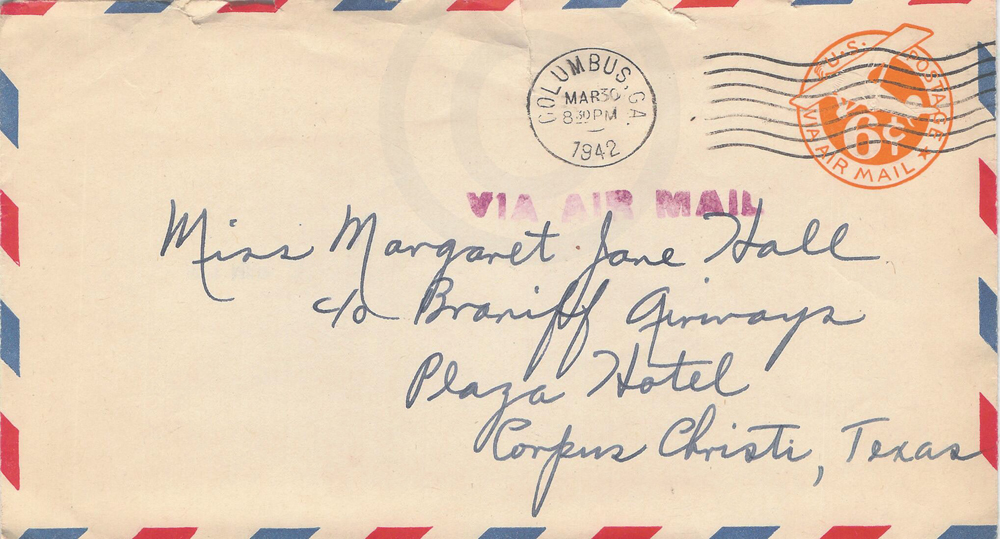 COLUMBUS, GA.
MAR 30
8 30 PM
1942
U.S. POSTAGE
6¢
VIA AIR MAIL
VIA AIR MAIL
Miss Margaret Jane Hall
c/o Braniff Airways
Plaza Hotel
Corpus Christi, Texas